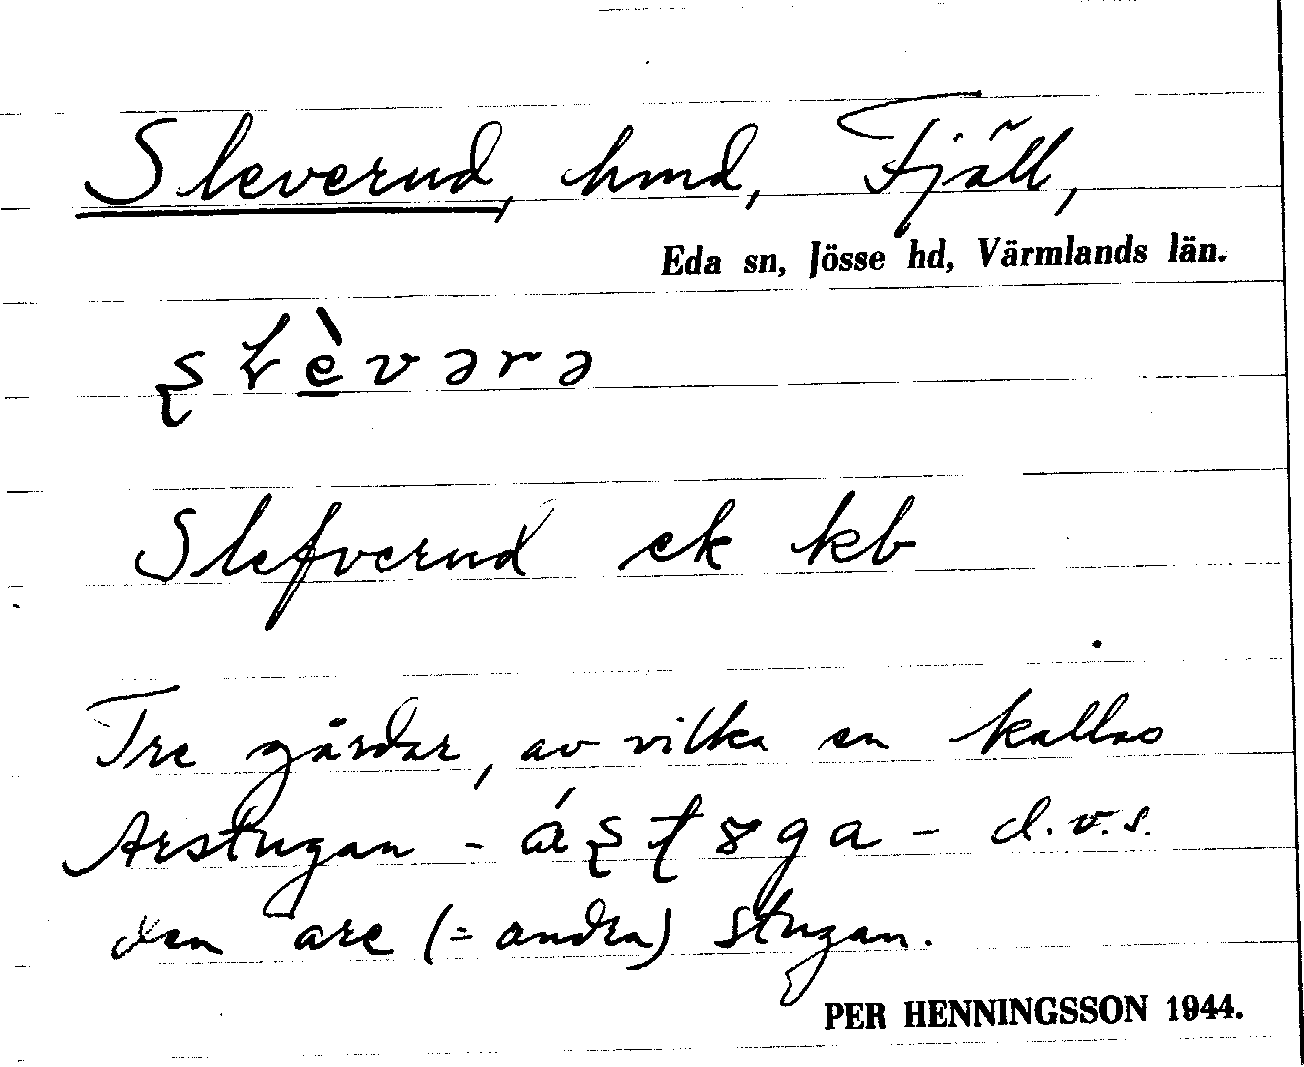 Sleverud, hmd, Fjäll,
Eda sn, Jösse hd, Värmlands län.
ʂɬè̲vərə
Slefverud ek kb
Tre gårdar, av vilka en kallas
Arstugan - áʂʈȣga - d.v.s.
den are (= andra) stugan.
PER HENNINGSSON 1944.